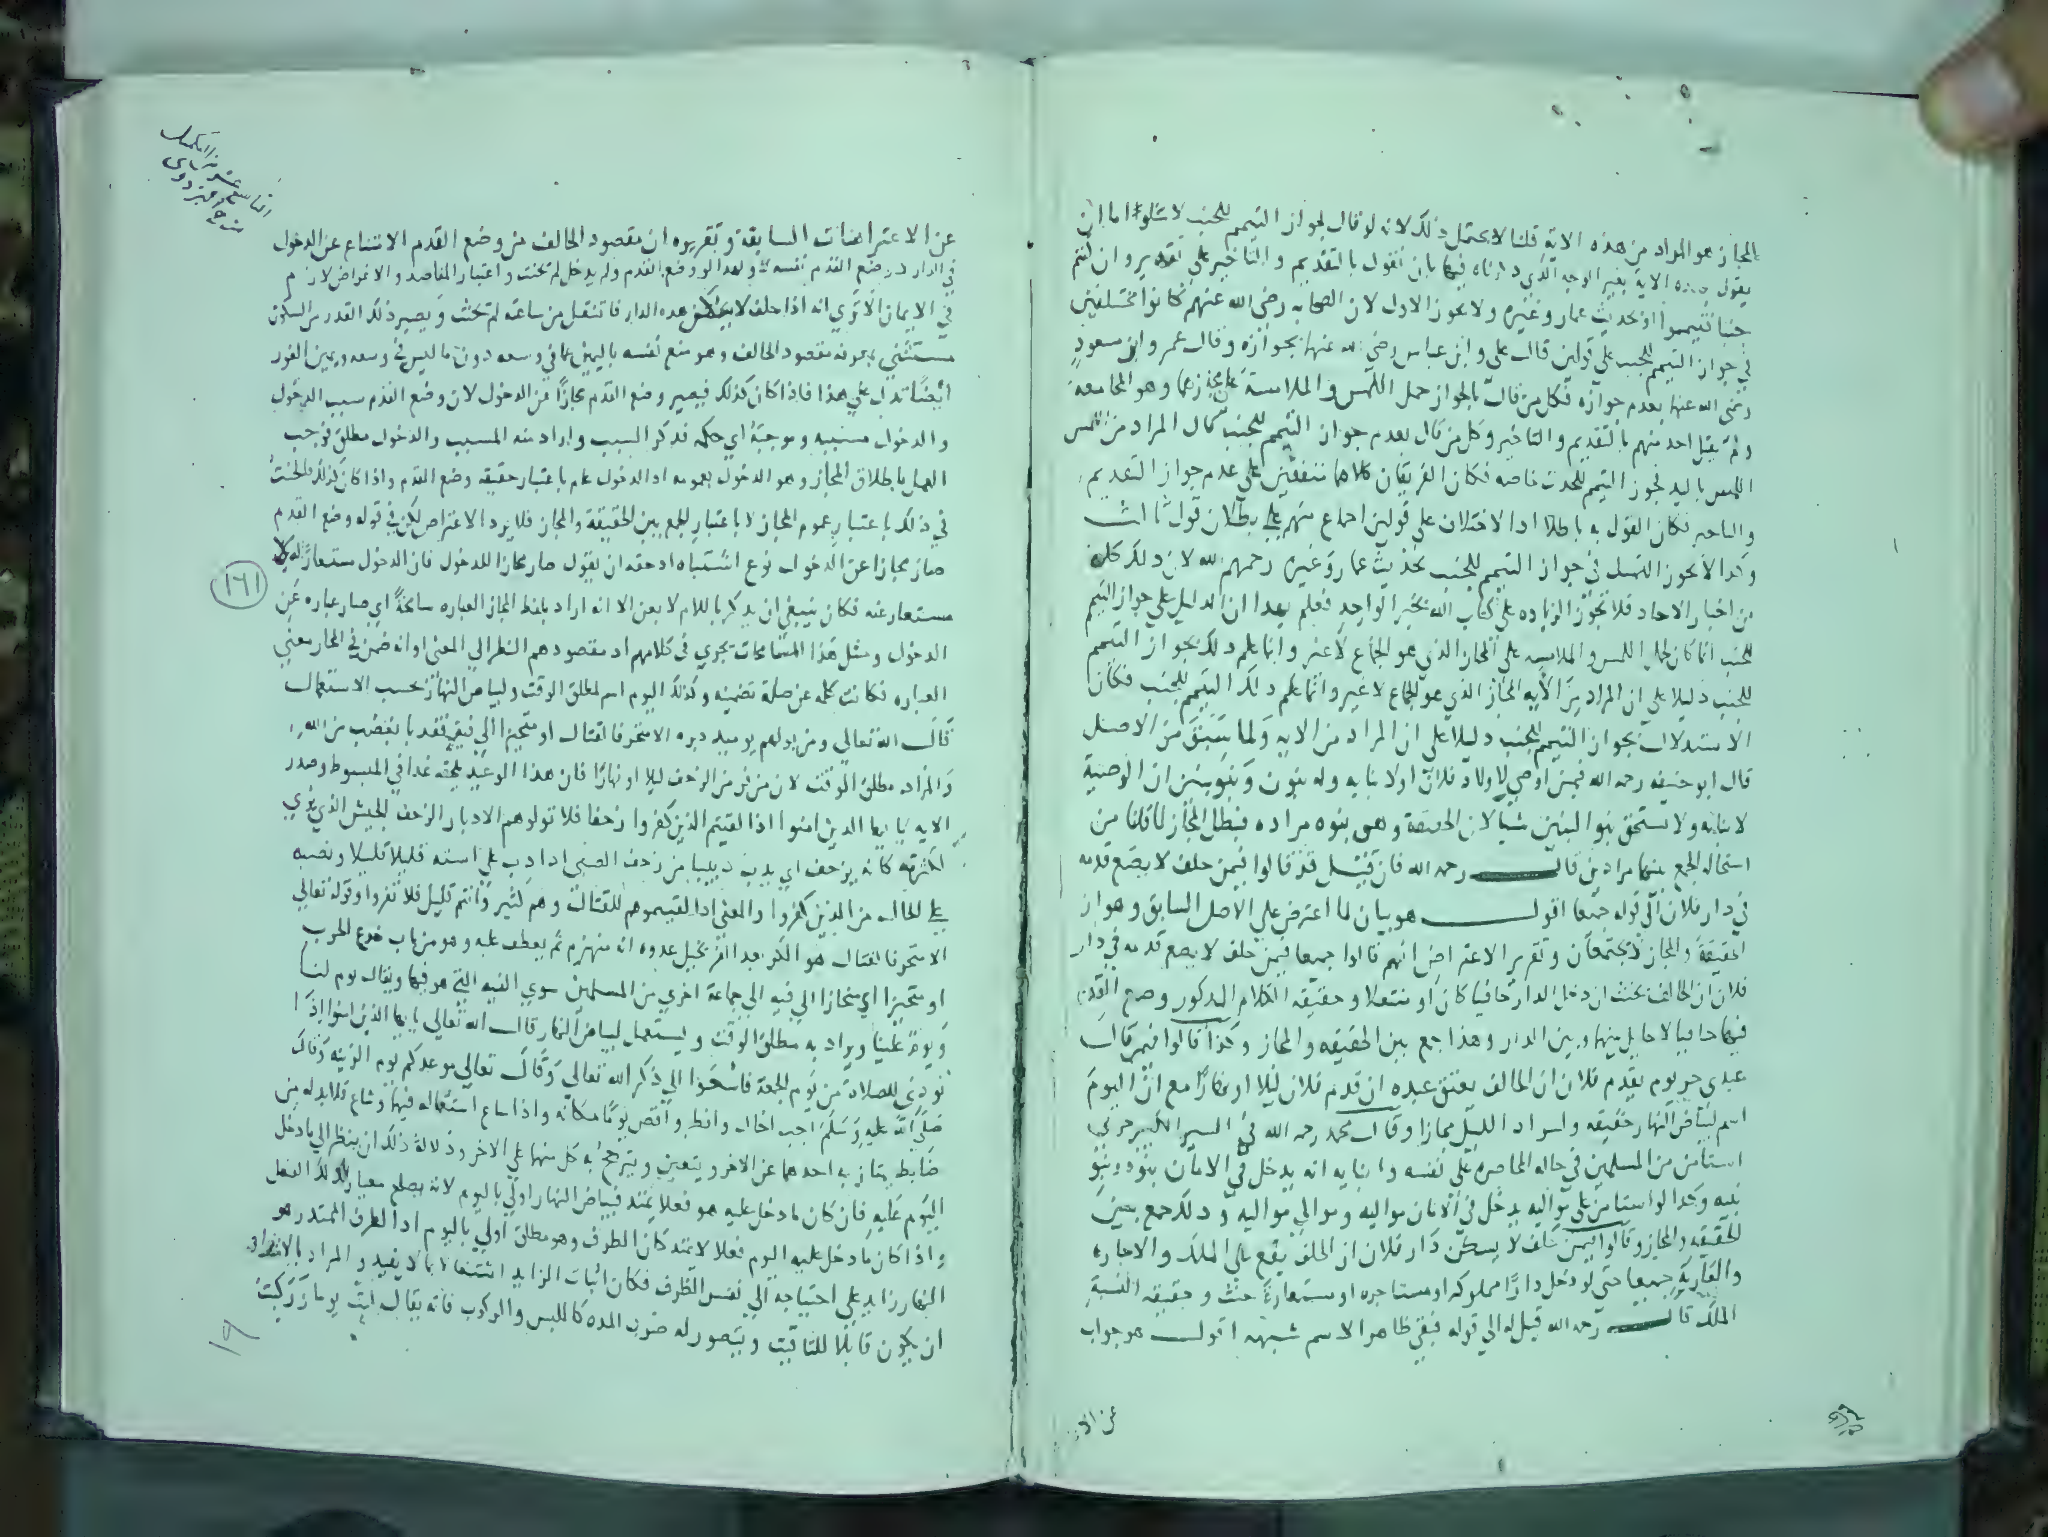 المجاز هو المراد من هذه الاية قلنا لا يحتمل ذلك لانه لو قال بجواز التيمم للجنب لا يخلو اما ان
يقول بهذه الاية بغير الوجه الذي ذكرناه فيها بان نقول بالتقديم والتاخير على تقدير وان كنتم
جنبا فتيمموا او بحديث عمار وغيره ولا يجوز الاول لان الصحابه رضى الله عنهم كانوا مختلفين
في جواز التيمم للجنب على قولين قال على وابن عباس رضي الله عنهما بجوازه وقال عمر وابن مسعود
رضى الله عنهما بعدم جوازه فكل من قال بالجواز حمل اللمس والملامسة على مجازهما وهو المجامعة
ولم يقل احد منهم بالتقديم والتاخير وكل من قال بعدم جواز التيمم للجنب قال المراد من اللمس
اللمس باليد فجوز التيمم للمحدث خاصه فكان الفريقان كلاهما متفقين على عدم جواز التقديم
والتاخير فكان القول به باطلا اذا الاختلاف على قولين اجماع منهم على بطلان قول ثالث
وكذا لا يجوز التمسك في جواز التيمم للجنب بحديث عمار وغيره رحمهم الله لان ذلك كله
من اخبار الاحاد فلا تجوز الزياده على كتاب الله بخبر الواحد فعلم بهذا ان الدليل على جواز التيمم
للجنب انما كان لحمل اللمس والملامسه على المجاز الذي هو الجماع لا غير وانما علم ذلك بجواز التيمم
للجنب دليلا على ان المراد من الاية المجاز الذي هو الجماع لا غير وانما علم ذلك التيمم للجنب فكان
الاستدلال بجواز التيمم للجنب دليلا على ان المراد من الاية ولما سبق من الاصل
قال ابو حنيفه رحمه الله فيمن اوصى لاولاد فلان او لابنايه وله بنون وبنو بنين ان الوصية
لابنايه ولا يستحق بنوا البنين شيا لان الحقيقة وهى بنوه مراده فبطل المجاز لما قلنا من
استحالة الجمع بينهما مرادين قال رحمه الله فان قيل قد قالوا فيمن حلف لا يضع قدمه
في دار فلان الى قوله جميعا اقول هو بيان لما اعترض على الاصل السابق وهو ان
الحقيقة والمجاز لا يجتمعان وتقرير الاعتراض انهم قالوا جميعا فيمن حلف لا يضع قدمه في دار
فلان ان الحالف يحنث ان دخل الدار حافيا كان او منتعلا وحقيقة الكلام المذكور وضع القدم
فيها حافيا لا حايل بينها وبين الدار وهذا جمع بين الحقيقه والمجاز وكذا قالوا فيمن قال
عبدي حر يوم يقدم فلان ان الحالف يعتق عبده ان قدم فلان ليلا او نهارا مع ان اليوم
اسم لبياض النهار حقيقه واسواد الليل مجازا وقال محمد رحمه الله في السير الكبير حربى
استامن من المسلمين في حاله المحاصرة على نفسه وابنايه انه يدخل في الامان بنوه وبنو
بنيه وكذا لو استامن على مواليه يدخل في الامان مواليه وموالي مواليه وذلك جمع بين
الحقيقه والمجاز وقالوا فيمن حلف لا يسكن دار فلان ان الحلف يقع على الملك والاجاره
والعارية جميعا حتى لو دخل دارا مملوكه او مستاجره او مستعارة حنث وحقيقه النسبة
الملك قال رحمه الله قيل له الي قوله فبقى ظاهر الاسم شبهه اقول هو جواب
عن الا
عن الاعتراضات السابقة وتقريره ان مقصود الحالف من وضع القدم الامتناع عن الدخول
في الدار دون وضع القدم نفسه ولهذا لو وضع القدم ولم يدخل لم يحنث واعتبار المقاصد والاغراض لازم
في الايمان الا ترى انه اذا حلف لا يسكن هذه الدار فانتقل من ساعته لم يحنث ويصير ذلك القدر من السكون
مستثنى بمعرفة مقصود الحالف وهو منع نفسه باليمين عما في وسعه دون ما ليس في وسعه ويمين الفور
ايضا تدل على هذا فاذا كان كذلك فيصير وضع القدم مجازا عن الدخول لان وضع القدم سبب الدخول
والدخول مسببه وموجبة اي حكمه فذكر السبب واراد منه المسبب والدخول مطلق فوجب
العمل باطلاق المجاز وهو الدخول بعمومه اذ الدخول عام باعتبار حقيقه وضع القدم واذا كان كذلك فالحنث
في ذلك باعتبار عموم المجاز لا باعتبار الجمع بين الحقيقة والمجاز فلا يرد الاعتراض لكن في قوله وضع القدم
صار مجازا عن الدخول نوع اشتباه اذ حقه ان يقول صار مجازا للدخول فان الدخول مستعار له لا
مستعار عنه فكان ينبغي ان يذكر باللام لا بعن الا انه اراد بلفظ المجاز العباره سامحة اي صار عباره عن
الدخول ومثل هذا المسامحات يجري في كلامهم اذ مقصودهم النظر الي المعنى او انه ضمن في المجاز معنى
العباره فكانت كلمه عن صلة تضمينه وكذلك اليوم اسم لمطلق الوقت ولبياض النهار بحسب الاستعمال
قال الله تعالي ومن يولهم يوميذ دبره الا متحرفا لقتال او متحيزا الي فية فقد باء بغضب من الله
والمراد مطلق الوقت لان من فر من الزحف ليلا او نهارا فان هذا الوعيد يلحقه غدا في المبسوط وصدر
الاية يا ايها الذين امنوا اذا لقيتم الذين كفروا زحفا فلا تولوهم الادبار الزحف الجيش الذي يرى
لكثرته كانه يزحف اي يدب دبيبا من زحف الصبى اذا دب على استه قليلا قليلا ونصبه
على الحال من الذين كفروا والمعنى اذا لقيتموهم للقتال وهم كثير وانتم قليل فلا تفروا وقوله تعالي
الا متحرفا لقتال هو الكر بعد الفر يخيل عدوه انه منهزم ثم يعطف عليه وهو من باب خدع الحرب
او متحيزا اي منحازا الي فيه الي جماعة اخرى من المسلمين سوى الفيه التي هو فيها ويقال يوم لنا
ويوم علينا ويراد به مطلق الوقت ويستعمل لبياض النهار قال الله تعالي يا ايها الذين امنوا اذا
نودي للصلاة من يوم الجمعة فاسعوا الي ذكر الله تعالي وقال تعالي موعدكم يوم الزينه وقال
صلى الله عليه وسلم اجب اخاك وافطر واقض يوما مكانه واذا ساع استعماله فيهما وشاع فلا بد له من
ضابط يمتاز به احدهما عن الاخر ويتعين ويترجح به كل منهما على الاخر ودلالة ذلك ان ينظر الي ما دخل
اليوم عليه فان كان ما دخل عليه هو فعلا يمتد فبياض النهار اولى باليوم لانه يصلح معيارا لذلك الفعل
واذا كان ما دخل عليه اليوم فعلا لا يمتد كان الظرف وهو مطلق اولى باليوم اذ الظرف الممتد وهو
النهار زايد على احتياجه الي نفس الظرف فكان اثبات الزايد اشتغالا بما لا يفيد والمراد بالامتداد
ان يكون قابلا للتاقيت ويتصور له ضرب المده كاللبس والركوب فانه يقال لبست يوما وركبت
١٦١
التاسع عشر من التكميل
شرح البزدوي